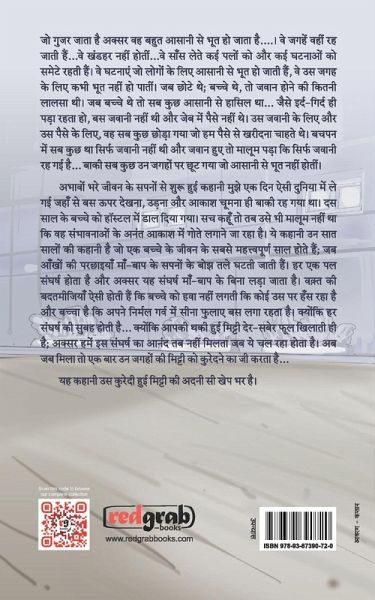 जो गुजर जाता है अक्सर वह बहुत आसानी से भूत हो जाता है....। वे जगहें वहीं रह
जाती हैं...वे खंडहर नहीं होतीं...वे साँस लेते कई पलों को और कई घटनाओं को
समेटे रहती हैं। वे घटनाएं जो लोगों के लिए आसानी से भूत हो जाती हैं, वे उस जगह
के लिए कभी भूत नहीं हो पातीं। जब छोटे थे; बच्चे थे, तो जवान होने की कितनी
लालसा थी। जब बच्चे थे तो सब कुछ आसानी से हासिल था... जैसे इर्द-गिर्द ही
पड़ा रहता हो, बस जवानी नहीं थी और जेब में पैसे नहीं थे। उस जवानी के लिए और
उस पैसे के लिए, वह सब कुछ छोड़ा गया जो हम पैसे से खरीदना चाहते थे। बचपन
में सब कुछ था सिर्फ जवानी नहीं थी और जवान हुए तो मालूम पड़ा कि सिर्फ जवानी
रह गई है... बाकी सब कुछ उन जगहों पर छूट गया जो आसानी से भूत नहीं होतीं।
अभावों भरे जीवन के सपनों से शुरू हुई कहानी मुझे एक दिन ऐसी दुनिया में ले
गई जहाँ से बस ऊपर देखना, उड़ना और आकाश चूमना ही बाकी रह गया था। दस
साल के बच्चे को हॉस्टल में डाल दिया गया। सच कहूँ तो तब उसे भी मालूम नहीं था
कि वह संभावनाओं के अनंत आकाश में गोते लगाने जा रहा है। ये कहानी उन सात
सालों की कहानी है जो एक बच्चे के जीवन के सबसे महत्त्वपूर्ण साल होते हैं; जब
आँखों की परछाइयाँ माँ-बाप के सपनों के बोझ तले घटती जाती हैं। हर एक पल
संघर्ष होता है और अक्सर यह संघर्ष माँ-बाप के बिना लड़ा जाता है। वक़्त की
बदतमीजियाँ ऐसी होती हैं कि बच्चे को हवा नहीं लगती कि कोई उस पर हँस रहा है
और बच्चा है कि अपने निर्मल गर्व में सीना फुलाए बस लगा रहता है। क्योंकि हर
संघर्ष की सुबह होती है...क्योंकि आपकी थकी हुई मिट्टी देर-सबेर फूल खिलाती ही
है; अक्सर हमें इस संघर्ष का आनंद तब नहीं मिलता जब ये चल रहा होता है। अब
जब मिला तो एक बार उन जगहों की मिट्टी को कुरेदने का जी करता है...
यह कहानी उस कुरेदी हुई मिट्टी की अदनी सी खेप भर है।
Scan this code to browse
our complete collection
redgrab
books
www.redgrabbooks.com
उपन्यास
ISBN 978-93-87390-72-0